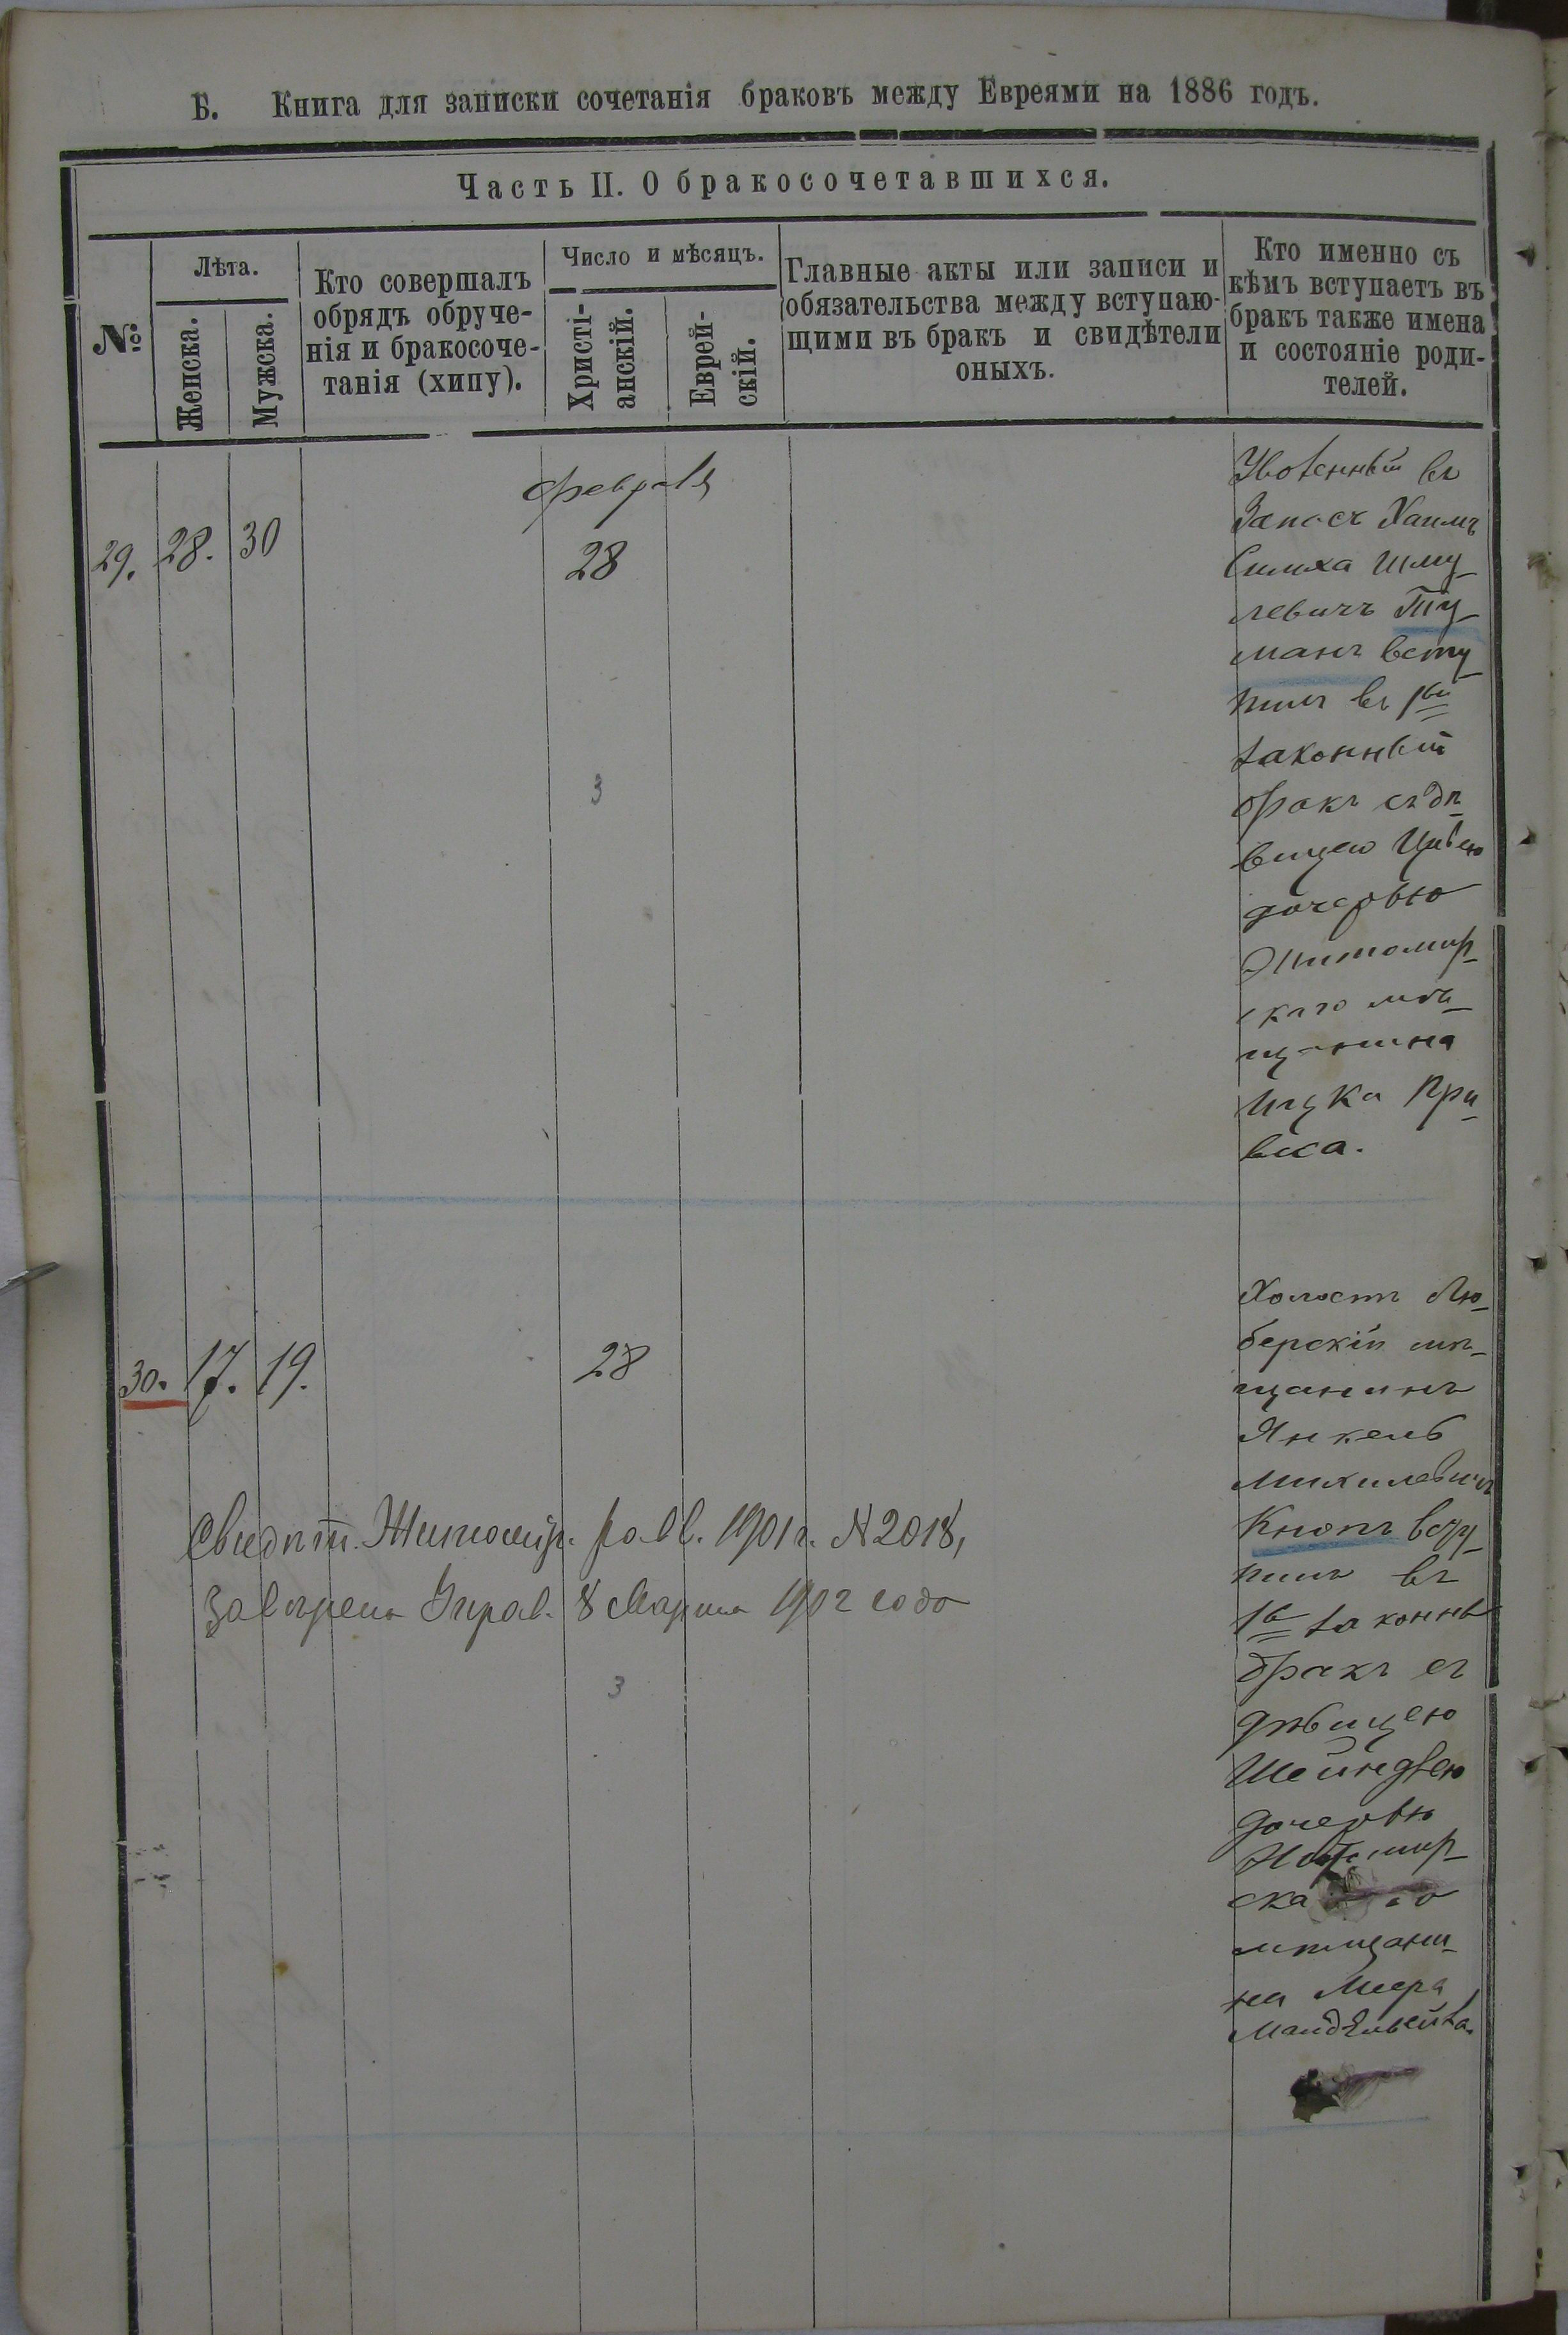 Б. Книга для записки сочетанія браковъ между Евреями на 1886 годъ.
Часть II. О бракосочетавшихся.
№
Лѣта.
Женска.
Мужска.
Кто совершалъ
обрядъ обруче-
нія и бракосоче-
танія (хипу).
Число и мѣсяцъ.
Христі-
анскій.
Еврей-
скій.
Главные акты или записи и
обязательства между вступаю-
щими въ бракъ и свидѣтели
оныхъ.
Кто именно съ
кѣмъ вступаетъ въ
бракъ также имена
и состояніе роди-
телей.
29. 28. 30
февраля
28
3
Уволенный въ
Запасъ Хаимъ
Симха Шму-
левичъ Ту-
манъ всту-
пилъ въ 1вый
законный
бракъ съ дѣ-
вицею Цивею
дочерью
Житомир-
скаго мѣ-
щанина
Ицка Кри-
виса.
30. 17. 19.
28
Холостъ Лю-
берскій мѣ-
щанинъ
Янкель
Михилевичъ
Кнопъ всту-
пилъ въ
1й законны
бракъ съ
дѣвицею
Шейндлею
дочерью
Житомир-
скаго
мѣщани-
на Меера
Свидѣт. Житомір. равв. 1901 г. № 2018,
завѣрено Управ. 8 Марта 1902 года
3